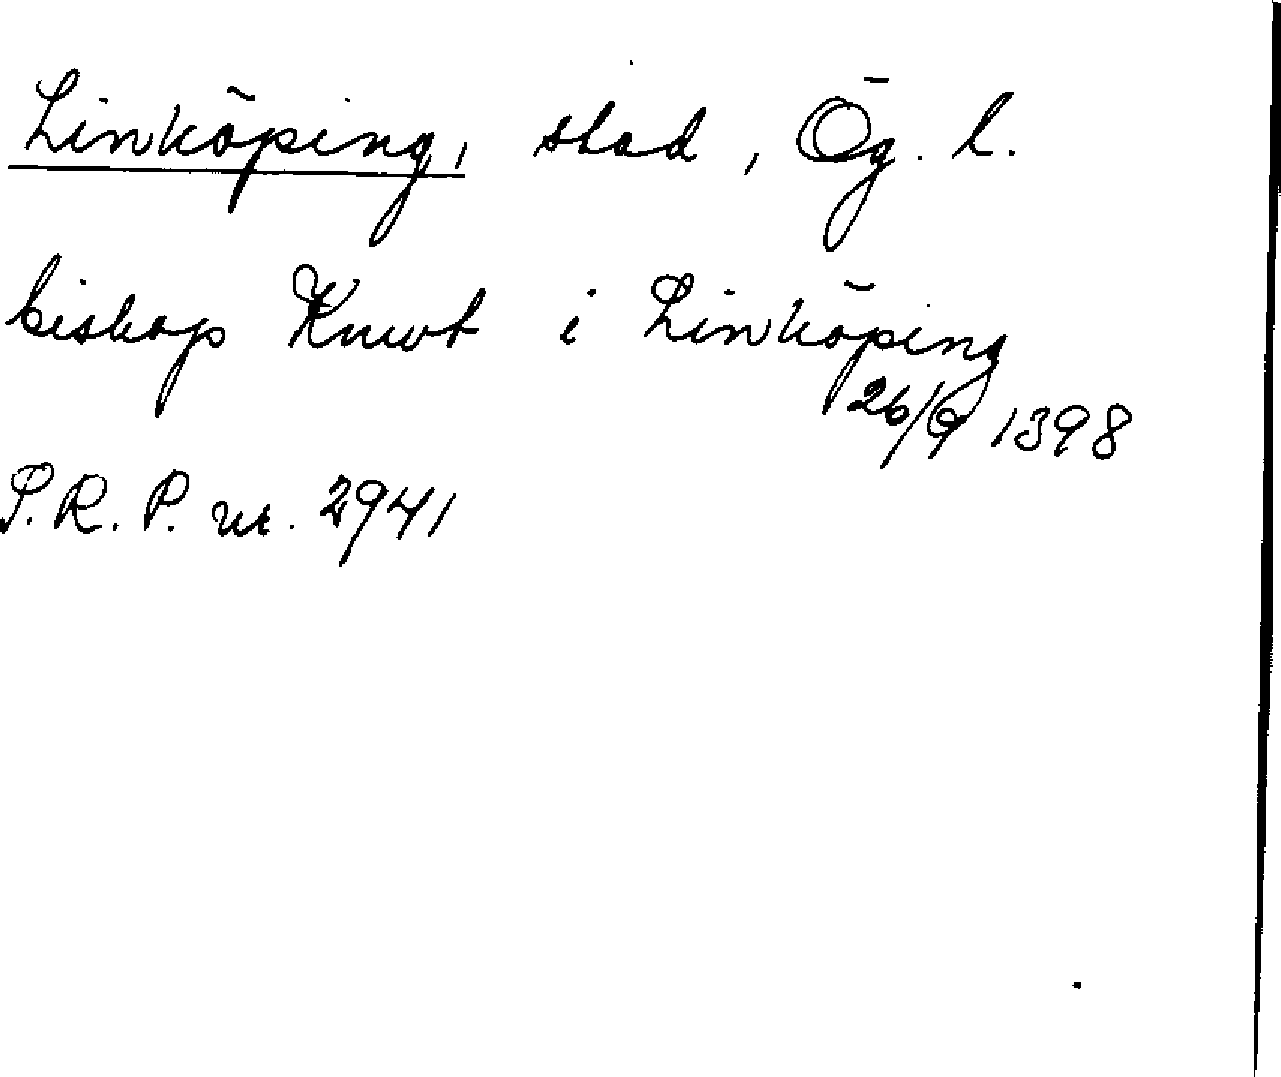 Linköping, stad, Ög. l.
biskop Knut i Linköping
26/9 1398
S.R.P. nr. 2941